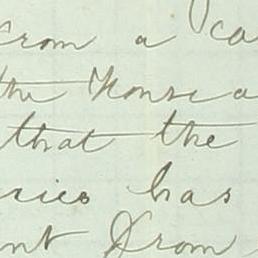 from a ca
the House a
that the
ries has
nt from